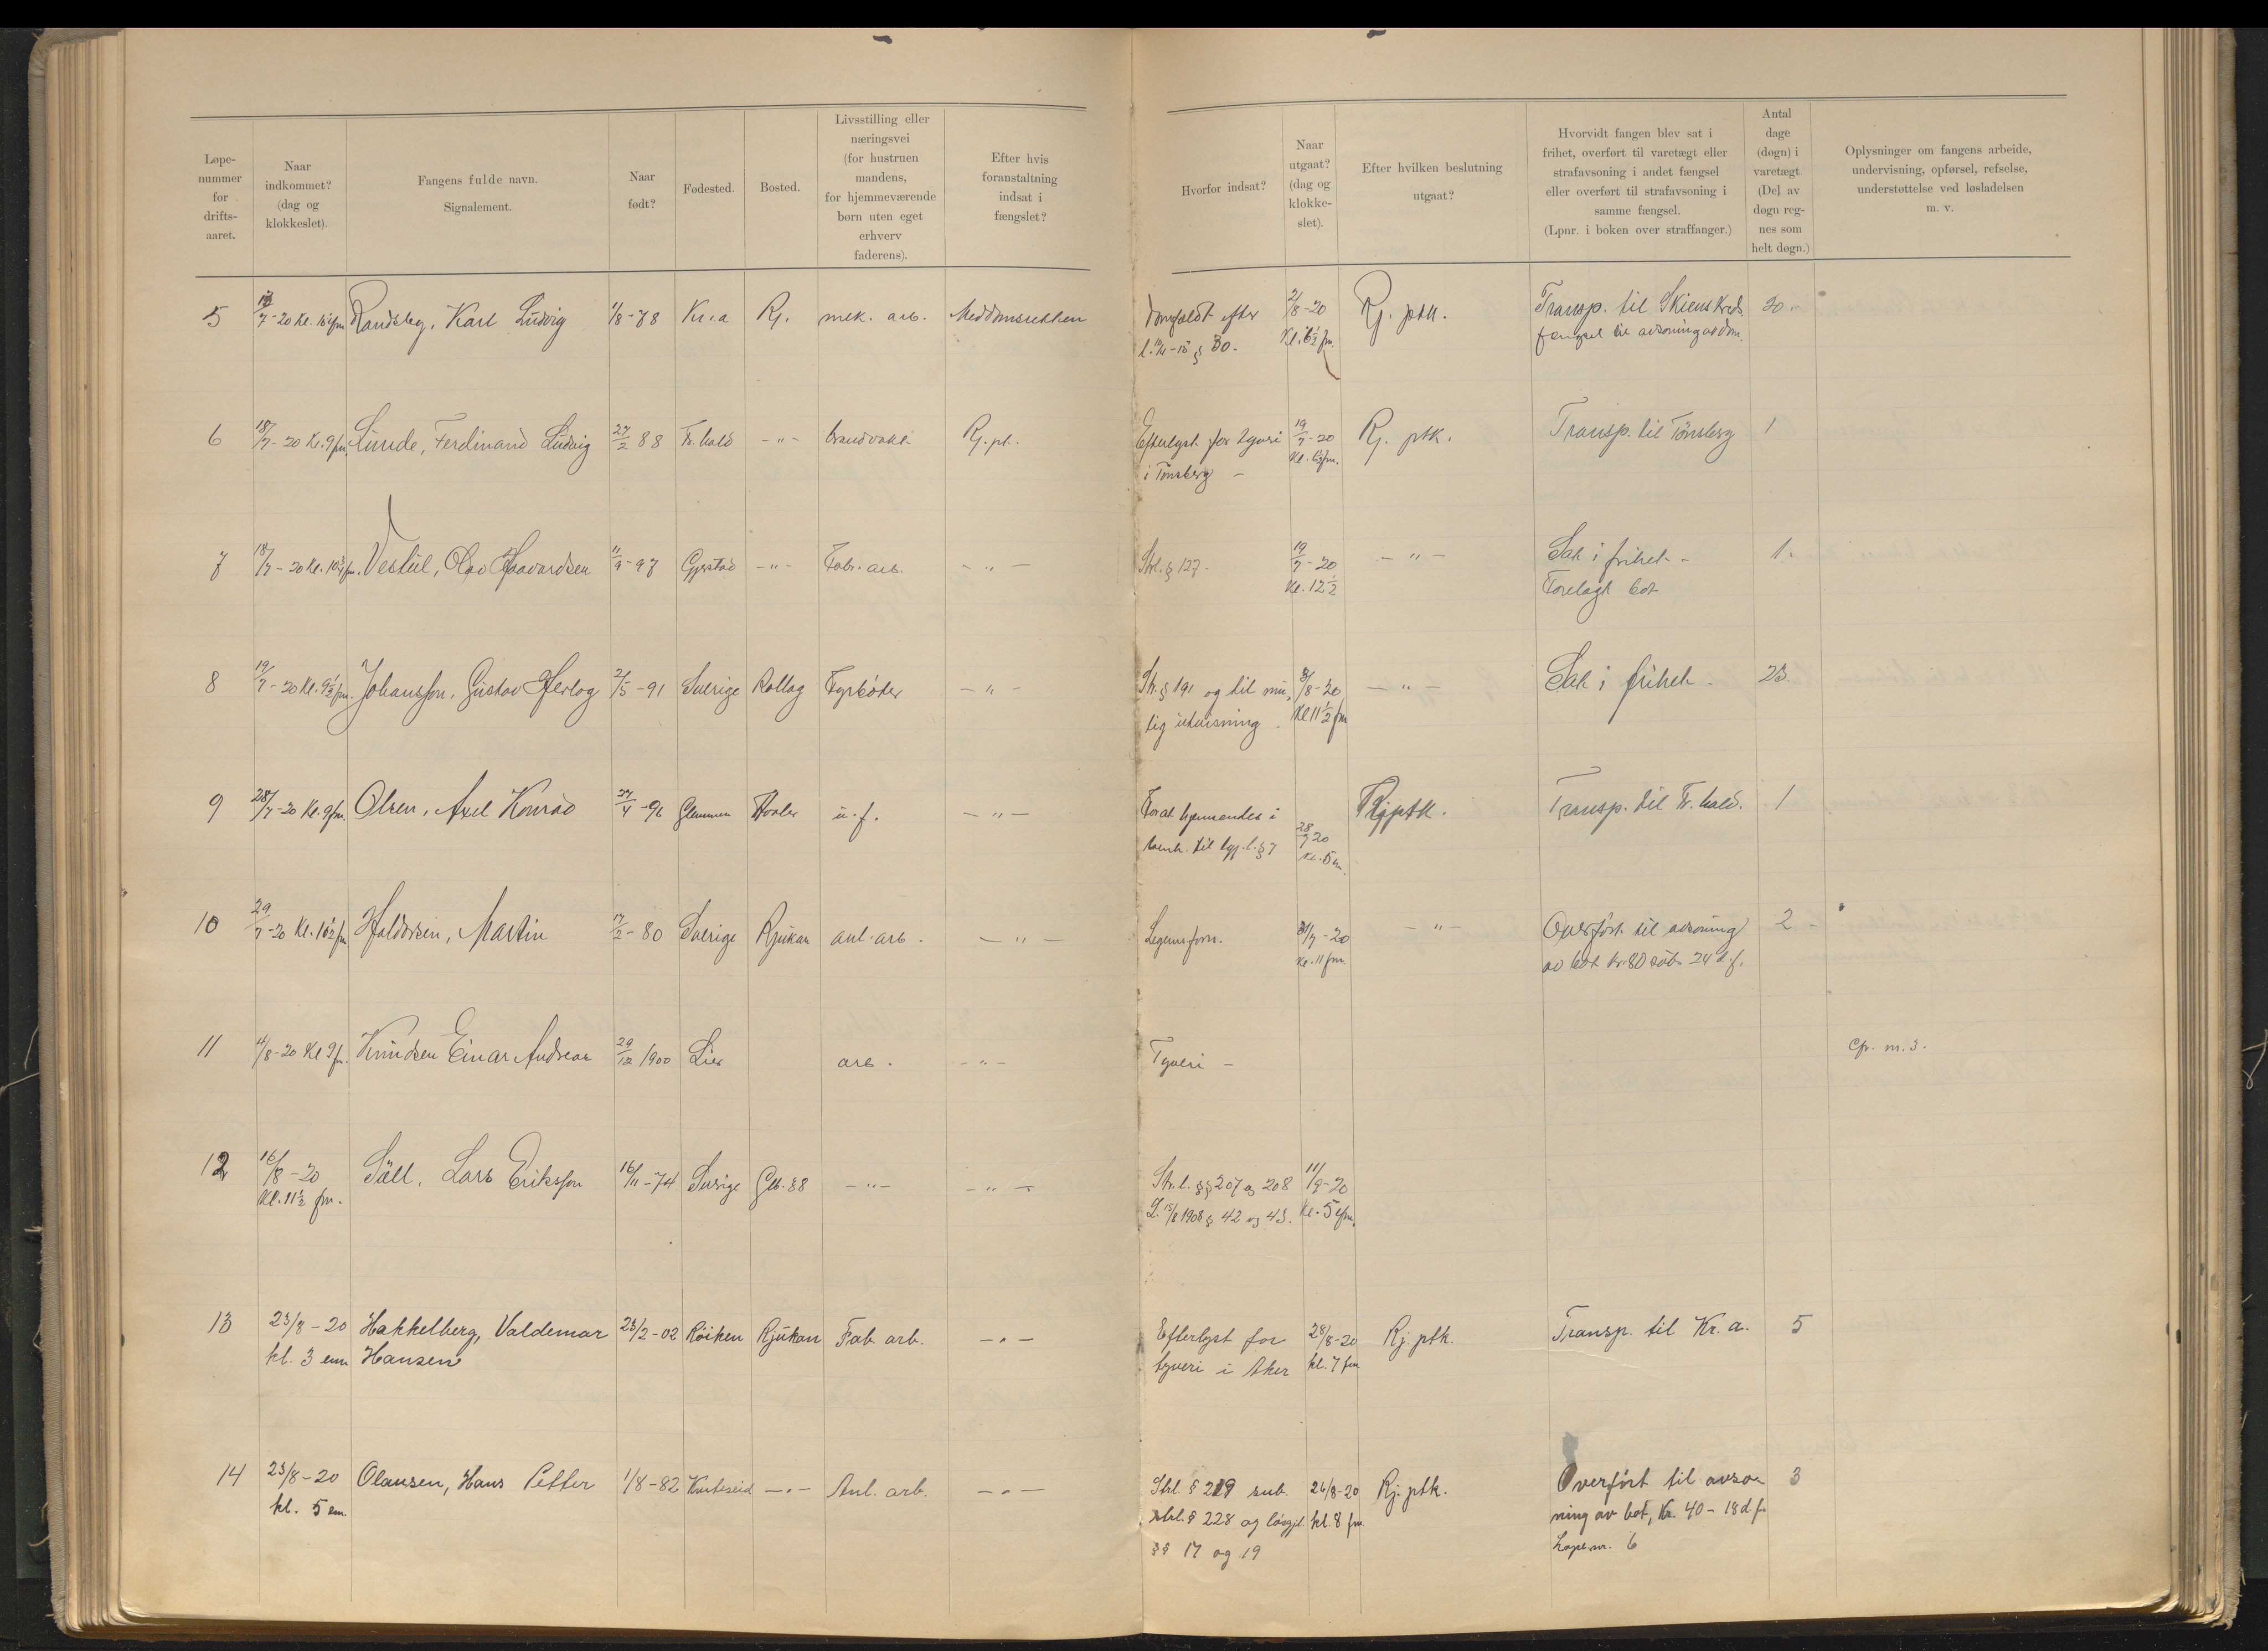 Løpe-
nummer
for
drifts-
aaret.
Naar
indkommet?
(dag og
klokkeslet).
Fangens fulde navn.
Signalement.
Naar
født?
Fødested.
Bosted.
Livsstilling eller
næringsvei
(for hustruen
mandens,
for hjemmeværende
børn uten eget
erhverv
faderens).
Efter hvis
foranstaltning
indsat i
fængslet?
Hvorfor indsat?
Naar
utgaat?
(dag og
klokke-
slet).
Efter hvilken beslutning
utgaat?
Hvorvidt fangen blev sat i
frihet, overført til varetægt eller
strafavsoning i andet fængsel
eller overført til strafavsoning i
samme fængsel.
(Lpnr. i boken over straffanger.)
Antal
dage
(døgn) i
varetægt
(Del av
døgn reg-
nes som
helt døgn.)
Oplysninger om fangens arbeide,
undervisning, opførsel, refselse,
understøttelse ved løsladelsen
m. v.
5 Karl Ludvig 1/8-78 Kr.a Rj. mek. arb. Meddomsretten Domfældt efter 2/8-20 Rj. ptk. Transp. til Skiens Kreds
§ 30. fængsel til avsoning av dom.
6 18/7-20 Kl. 9 fm. Lunde, Ferdinand Ludvig 27/2 88 Fr.hald -"- brandvakt Rj. pk. Efterlyst for tyveri 19/7-20 Rj. ptk. Transp. til Tønsberg 1
i Tønsberg -
7 18/7-20 Vestul, Olav Haavardsen -97 Gjerstad -"- Fabr. arb. -"- Strl. § 127. 19/7-20 -"- Sat i frihet - 1.
Kl. 12 1/2 Forelagt bot
8 19/7-20 Kl. 9 1/2 fm. Johansson, Gustav Hertog 2/5-91 Sverige Rollag Fyrbøter -"- Str. § 191 og til mu- 8/8-20 -"- Sat i frihet -
lig utvisning - Kl 11 1/2 fm
9 28/7-20 Kl. 9 fm. Olsen, Axel Konrad 27/4-96 Glemmen u.f. -"- Forat hjemsendes i 28/7 20 Rj ptk. Transp. til Fr.hald. 1
til § 7 Kl. 5 em.
10 29/7-20 Haldorsen, Martin 17/2-80 Sverige Rjukan anl. arb. -"- Legemsforn. 31/7-20 -"- Overført til avsoning 2
Kl. 11 fm. av bot kr. 80 sub. 24 d.f.
11 4/8-20 Kl 9 fm. Knudsen Einar Andreas 29/12 1900 Lier arb. -"- Tyveri - Cfr. nr. 3.
12 16/8-20 Säll, Lars Eriksson 16/11-74 Sverige -"- -"- Str. l. §§ 207 og 208 11/9-20
Kl. 11 1/2 fm. 1908 § 42 og 43. Kl. 5
13 23/8-20 Hakkelberg, Valdemar 23/2-02 Röiken Rjukan Fab. arb. -"- Efterlyst for 28/8-20 Rj. ptk. Transp. til Kr.a. 5
kl. 3 em Hansen tyveri i Aker kl. 7 fm
14 23/8-20 Olausen, Hans Petter 1/8-82 -"- Anl. arb. -"- Strl. § 219 sub. 26/8-20 Rj. ptk. Overført til avso- 3
kl. 5 em. strl. § 228 og løsgjl. kl. 8 fm. ning av bot, Kr. 40 - 18 d f.
§§ 17 og 19 Løpe nr. 6